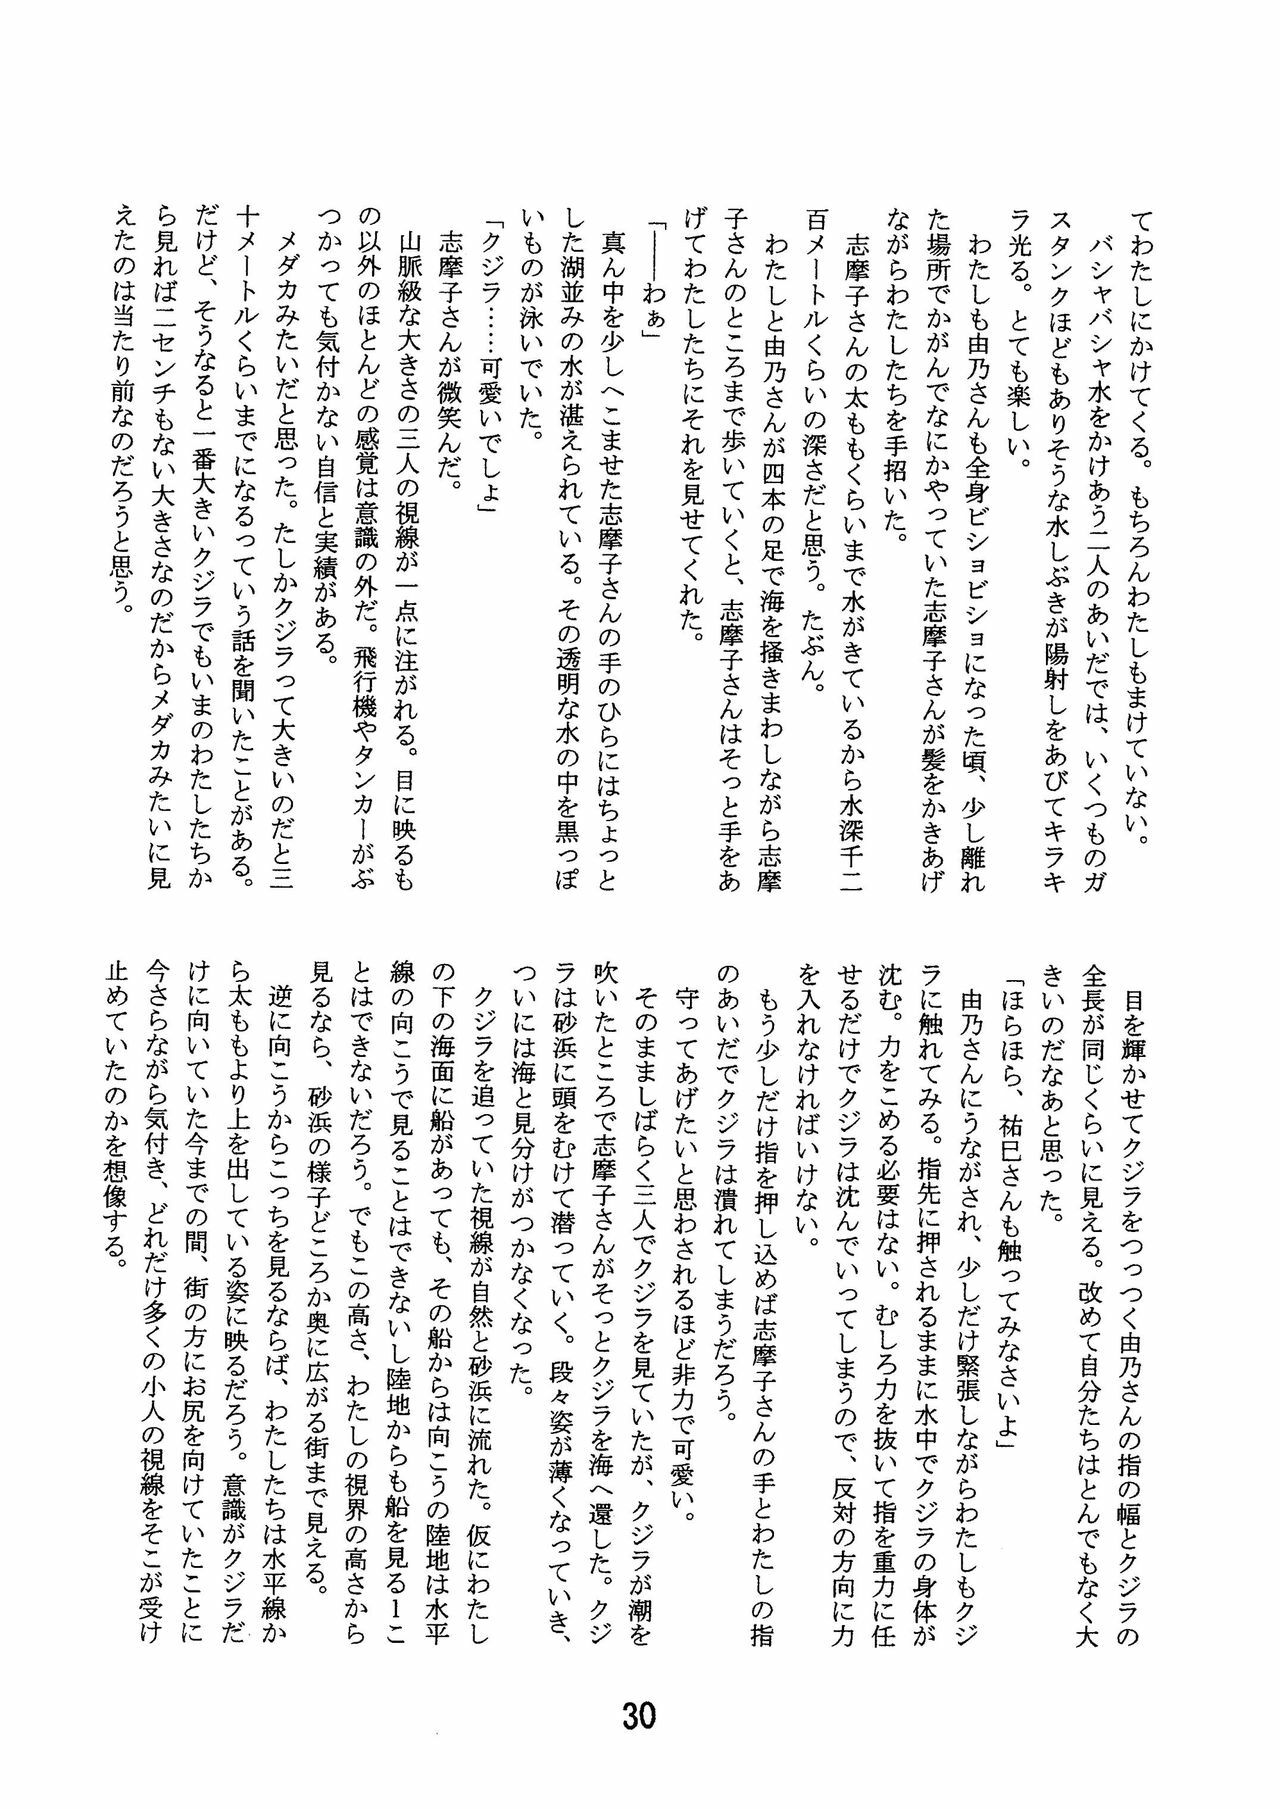 てわたしにかけてくる。もちろんわたしもまけていない。
　バシャバシャ水をかけあう二人のあいだでは、いくつものガ
スタンクほどもありそうな水しぶきが陽射しをあびてキラキ
ラ光る。とても楽しい。
　わたしも由乃さんも全身ビショビショになった頃、少し離れ
た場所でかがんでなにかやっていた志摩子さんが髪をかきあげ
ながらわたしたちを手招いた。
　志摩子さんの太ももくらいまで水がきているから水深千二
百メートルくらいの深さだと思う。たぶん。
　わたしと由乃さんが四本の足で海を掻きまわしながら志摩
子さんのところまで歩いていくと、志摩子さんはそっと手をあ
げてわたしたちにそれを見せてくれた。
「――わぁ」
　真ん中を少しへこませた志摩子さんの手のひらにはちょっと
した湖並みの水が湛えられている。その透明な水の中を黒っぽ
いものが泳いでいた。
「クジラ……可愛いでしょ」
　志摩子さんが微笑んだ。
　山脈級な大きさの三人の視線が一点に注がれる。目に映るも
の以外のほとんどの感覚は意識の外だ。飛行機やタンカーがぶ
つかっても気付かない自信と実績がある。
　メダカみたいだと思った。たしかクジラって大きいのだと三
十メートルくらいまでになるっていう話を聞いたことがある。
だけど、そうなると一番大きいクジラでもいまのわたしたちか
ら見れば二センチもない大きさなのだからメダカみたいに見
えたのは当たり前なのだろうと思う。
　目を輝かせてクジラをつっつく由乃さんの指の幅とクジラの
全長が同じくらいに見える。改めて自分たちはとんでもなく大
きいのだなあと思った。
「ほらほら、祐巳さんも触ってみなさいよ」
　由乃さんにうながされ、少しだけ緊張しながらわたしもクジ
ラに触れてみる。指先に押されるままに水中でクジラの身体が
沈む。力をこめる必要はない。むしろ力を抜いて指を重力に任
せるだけでクジラは沈んでいってしまうので、反対の方向に力
を入れなければいけない。
　もう少しだけ指を押し込めば志摩子さんの手とわたしの指
のあいだでクジラは潰れてしまうだろう。
　守ってあげたいと思わされるほど非力で可愛い。
　そのまましばらく三人でクジラを見ていたが、クジラが潮を
吹いたところで志摩子さんがそっとクジラを海へ還した。クジ
ラは砂浜に頭をむけて潜っていく。段々姿が薄くなっていき、
ついには海と見分けがつかなくなった。
　クジラを追っていた視線が自然と砂浜に流れた。仮にわたし
の下の海面に船があっても、その船からは向こうの陸地は水平
線の向こうで見ることはできないし陸地からも船を見るーこ
とはできないだろう。でもこの高さ、わたしの視界の高さから
見るなら、砂浜の様子どころか奥に広がる街まで見える。
　逆に向こうからこっちを見るならば、わたしたちは水平線か
ら太ももより上を出している姿に映るだろう。意識がクジラだ
けに向いていた今までの間、街の方にお尻を向けていたことに
今さらながら気付き、どれだけ多くの小人の視線をそこが受け
止めていたのかを想像する。
30